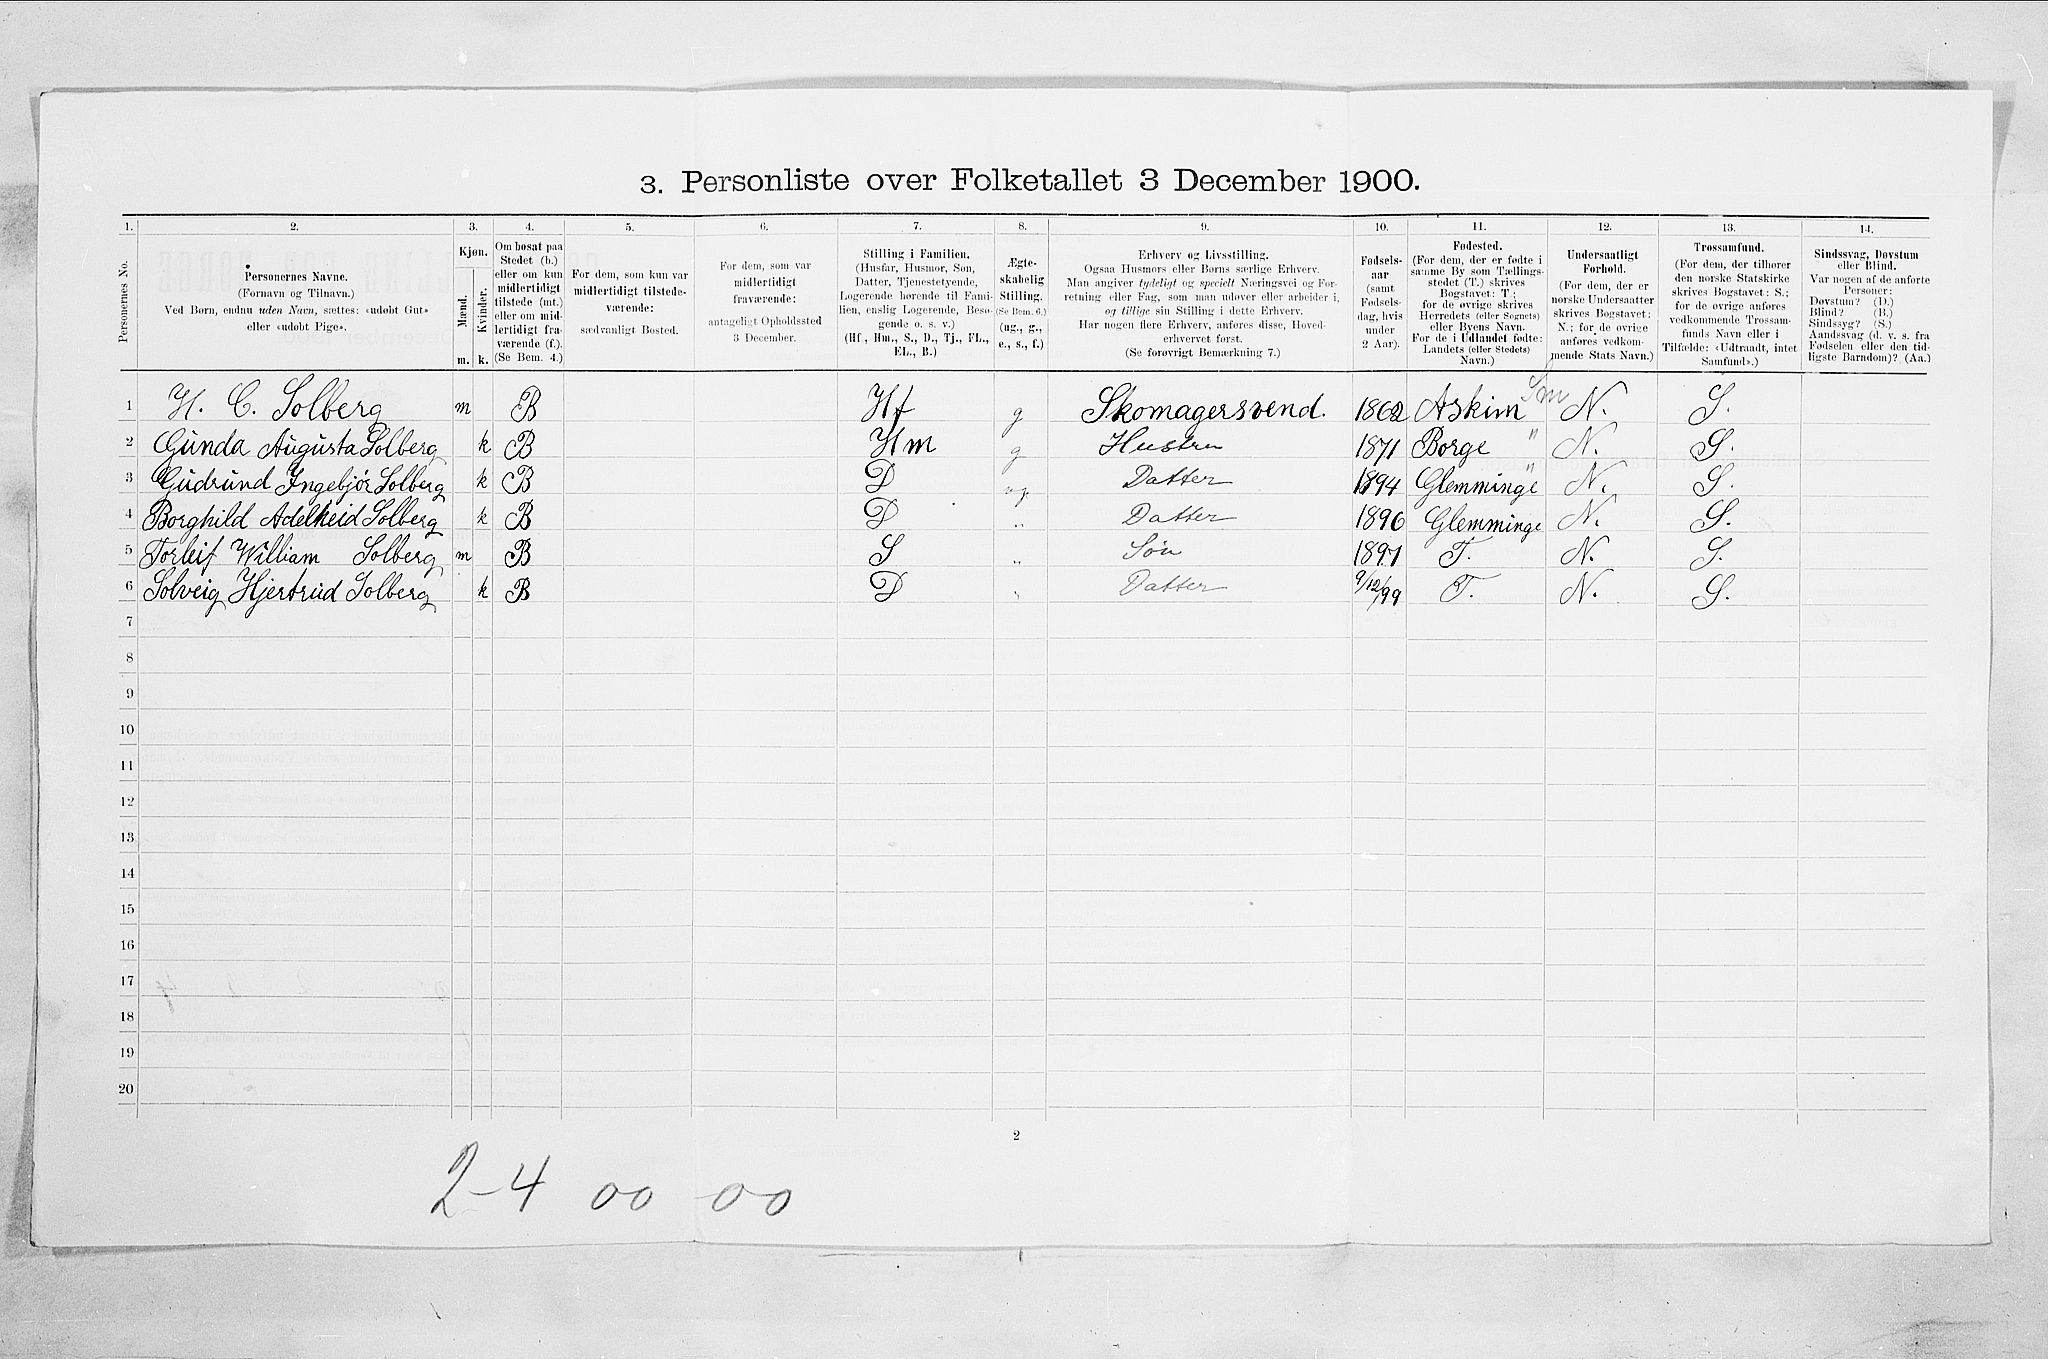 3. Personliste over Folketallet 3 December 1900.
1. 2. 3. 4. 5. 6. 7. 8. 9. 10. 11. 12. 13. 14.
Personernes No.
Personernes Navne.
(Fornavn og Tilnavn.)
Ved Børn, endnu uden Navn, sættes: «udøbt Gut»
eller «udøbt Pige».
Kjøn.
Mænd.
Kvinder.
m. k.
Om bosat paa
Stedet (b.)
eller om kun
midlertidigt
tilstede (mt.)
eller om mid-
lertidigt fra-
værende (f.).
(Se Bem. 4.)
For dem, som kun var
midlertidigt tilstede-
værende:
sædvanligt Bosted.
For dem, som var
midlertidigt
fraværende:
antageligt Opholdssted
3 December.
Stilling i Familien.
(Husfar, Husmor, Søn,
Datter, Tjenestetyende,
Logerende hørende til Fami-
lien, enslig Logerende, Besø-
gende o. s. v.)
(Hf., Hm., S., D., Tj., FL.,
EL., B.)
Ægte-
skabelig
Stilling.
(Se Bem. 6.)
(ug., g.,
e., s., f.)
Erhverv og Livsstilling.
Ogsaa Husmors eller Børns særlige Erhverv.
Man angiver tydeligt og specielt Næringsvei og For-
retning eller Fag, som man udøver eller arbeider i,
og tillige sin Stilling i dette Erhverv.
Har nogen flere Erhverv, anføres disse, Hoved-
erhvervet først.
(Se forøvrigt Bemærkning 7.)
Fødsels-
aar
(samt
Fødsels-
dag, hvis
under
2 Aar).
Fødested.
(For dem, der er fødte i
samme By som Tællings-
stedet (T.) skrives
Bogstavet: T;
for de øvrige skrives
Herredets (eller Sognets)
eller Byens Navn.
For de i Udlandet fødte:
Landets (eller Stedets)
Navn.)
Undersaatligt
Forhold.
(For dem, der er
norske Undersaatter
skrives Bogstavet:
N.; for de øvrige
anføres vedkom-
mende Stats Navn.)
Trossamfund.
(For dem, der tilhører
den norske Statskirke
skrives Bogstavet: S.;
for de øvrige anføres
vedkommende Trossam-
funds Navn eller i
Tilfælde: «Udtraadt, intet
Samfund».)
Sindssvag, Døvstum
eller Blind.
Var nogen af de anførte
Personer:
Døvstum? (D.)
Blind? (B.)
Sindssyg? (S.)
Aandssvag (d. v. s. fra
Fødselen eller den tid-
ligste Barndom)? (Aa.)
Sm
1 H. C. Solberg m B Hf g Skomagersvend. 1862 Askim N. S.
2 Gunda Augusta Solberg k B Hm g Hustru 1871 Borge " N. S.
3 Gudrund Ingebjør Solberg k B D ug. Datter 1894 Glemminge " N. S.
4 Borghild Adelheid Solberg k B D " Datter 1896 Glemminge N. S.
5 Torleif William Solberg m B S " Søn 1897 T. N. S.
6 Solveig Hjertrud Solberg k B D " Datter 9/12/99 T. N. S.
7
8
9
10
11
12
13
14
15
16
17
18
19
20
2
2-4 00 00